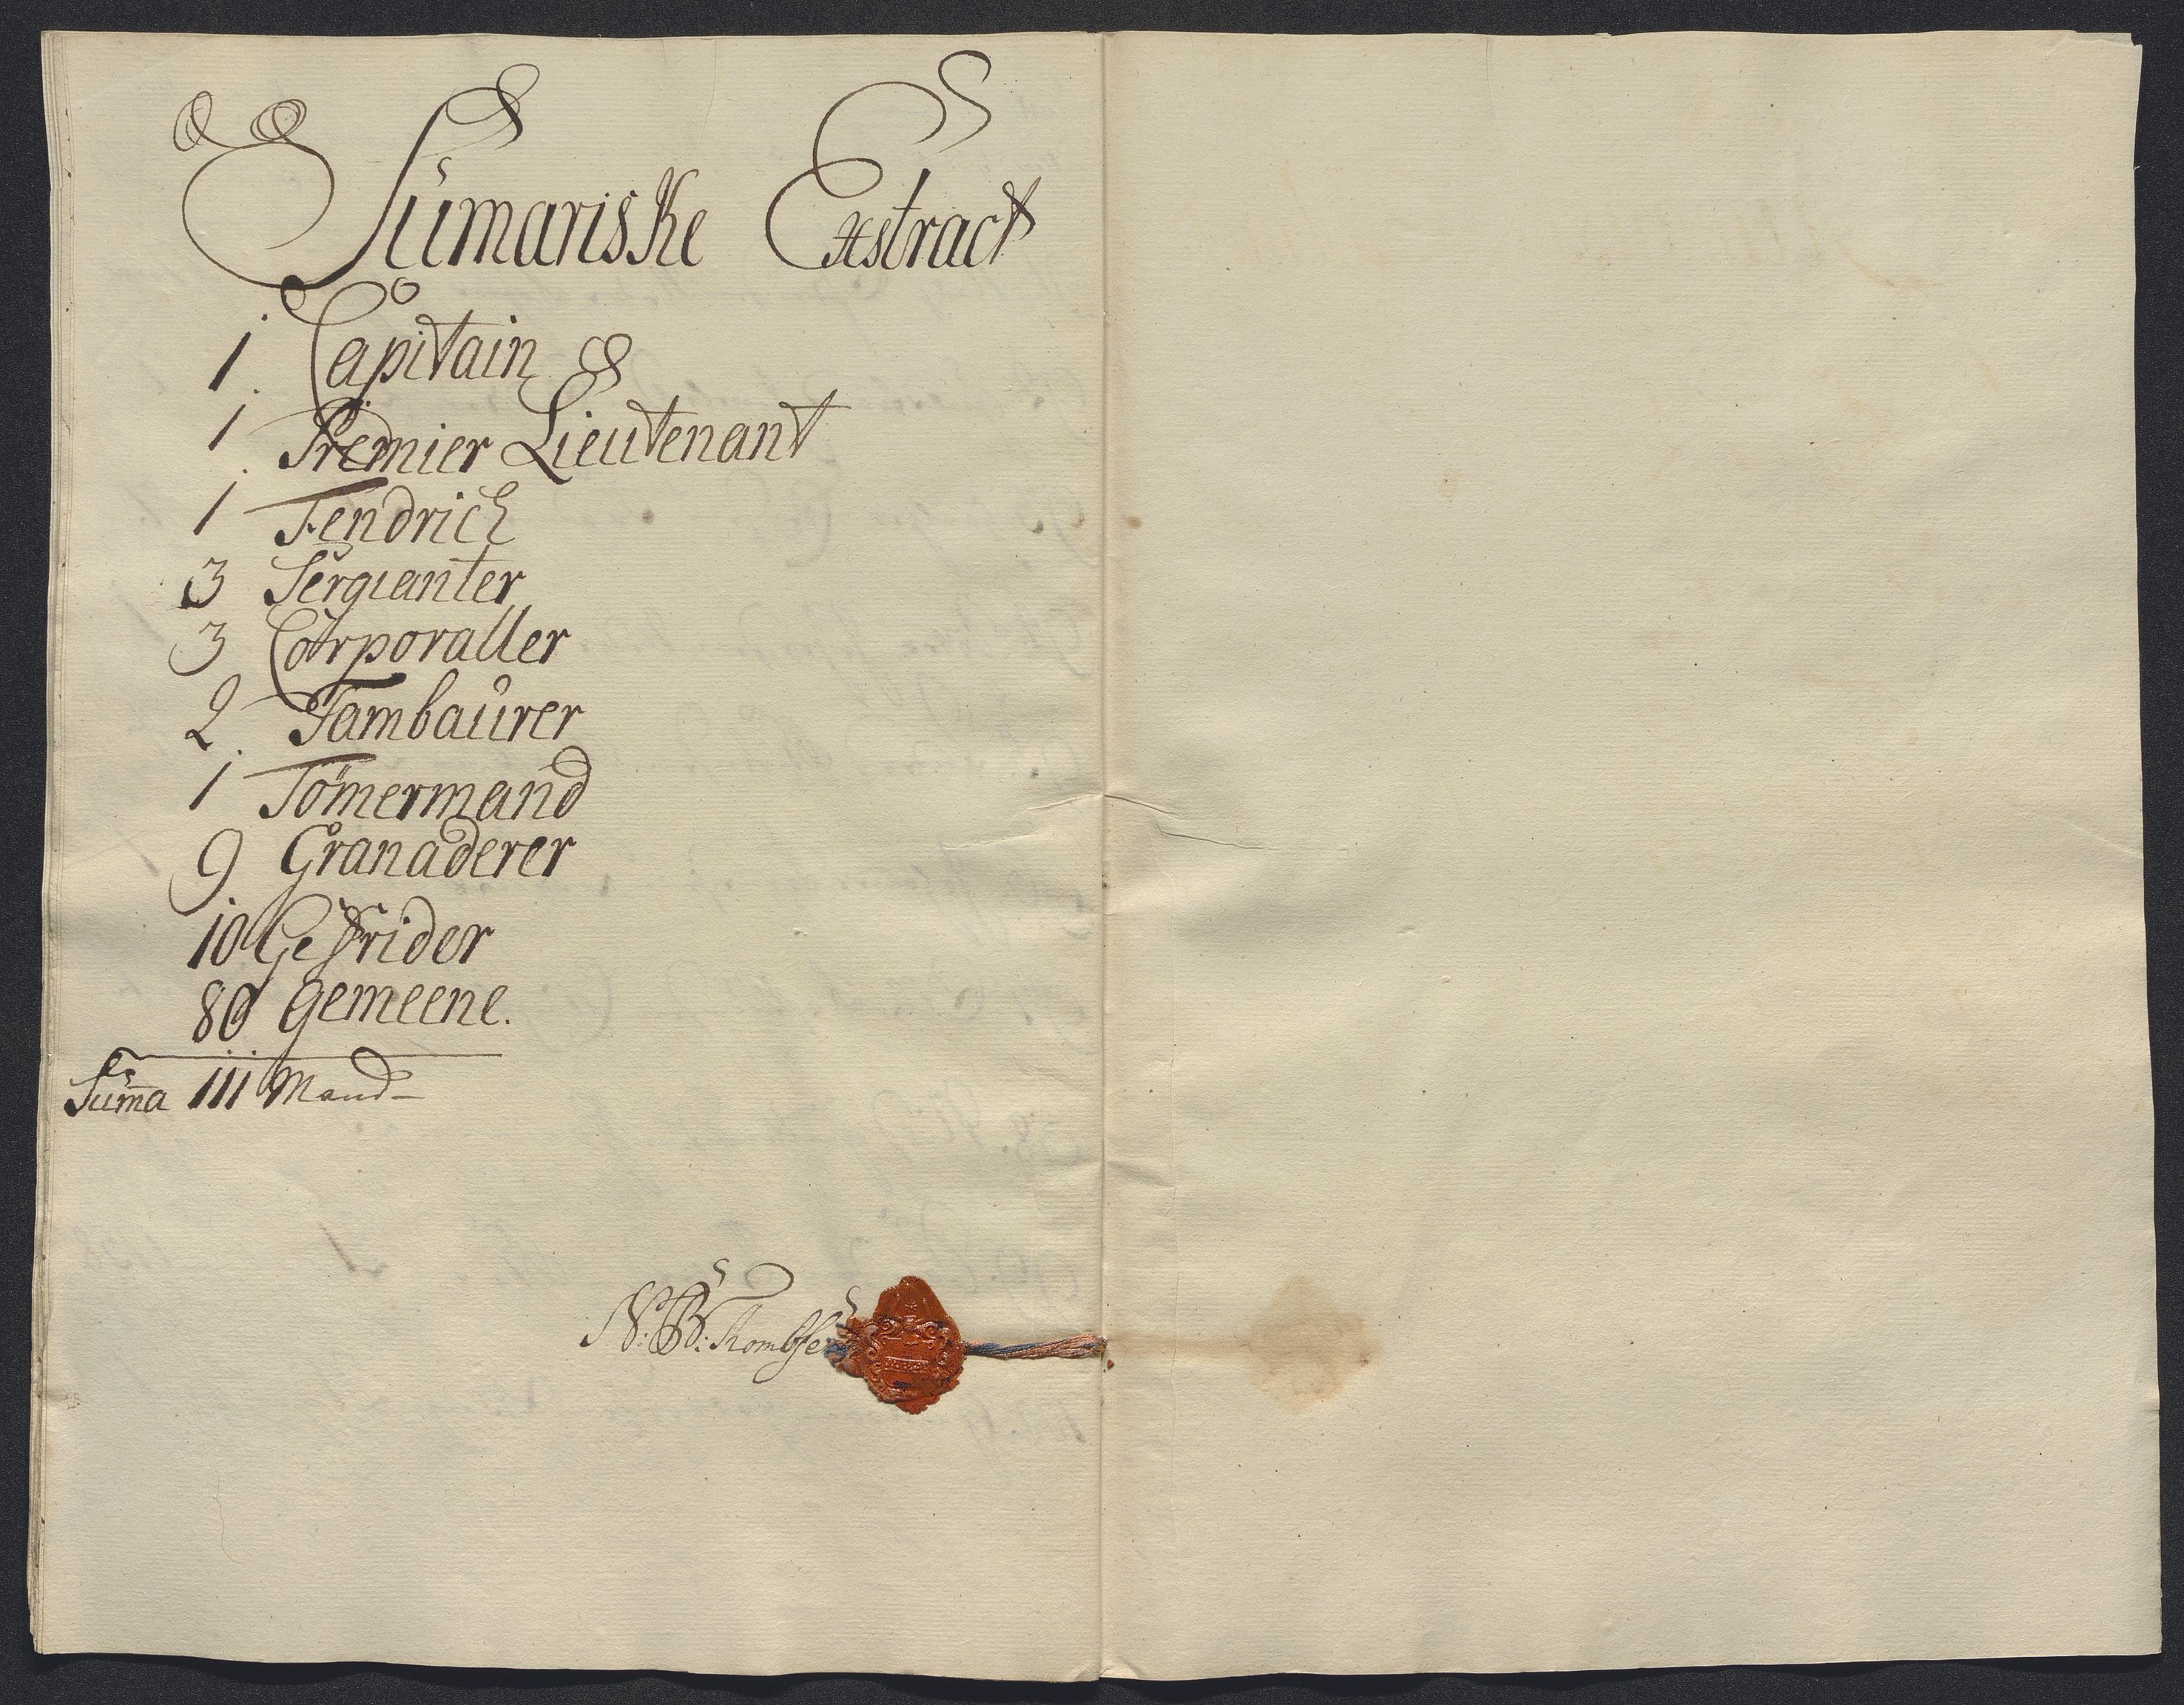 Sumariske Exstract
1. Capitain
1. Premier Lieutenant
1 Fendrich
3 Sergianter
3 Corporaller
2. Tambaurer
1 Tømermand
9 Granaderer
10 Gefrider
80 Gemeene.
Suma 111 Mand
N: B: